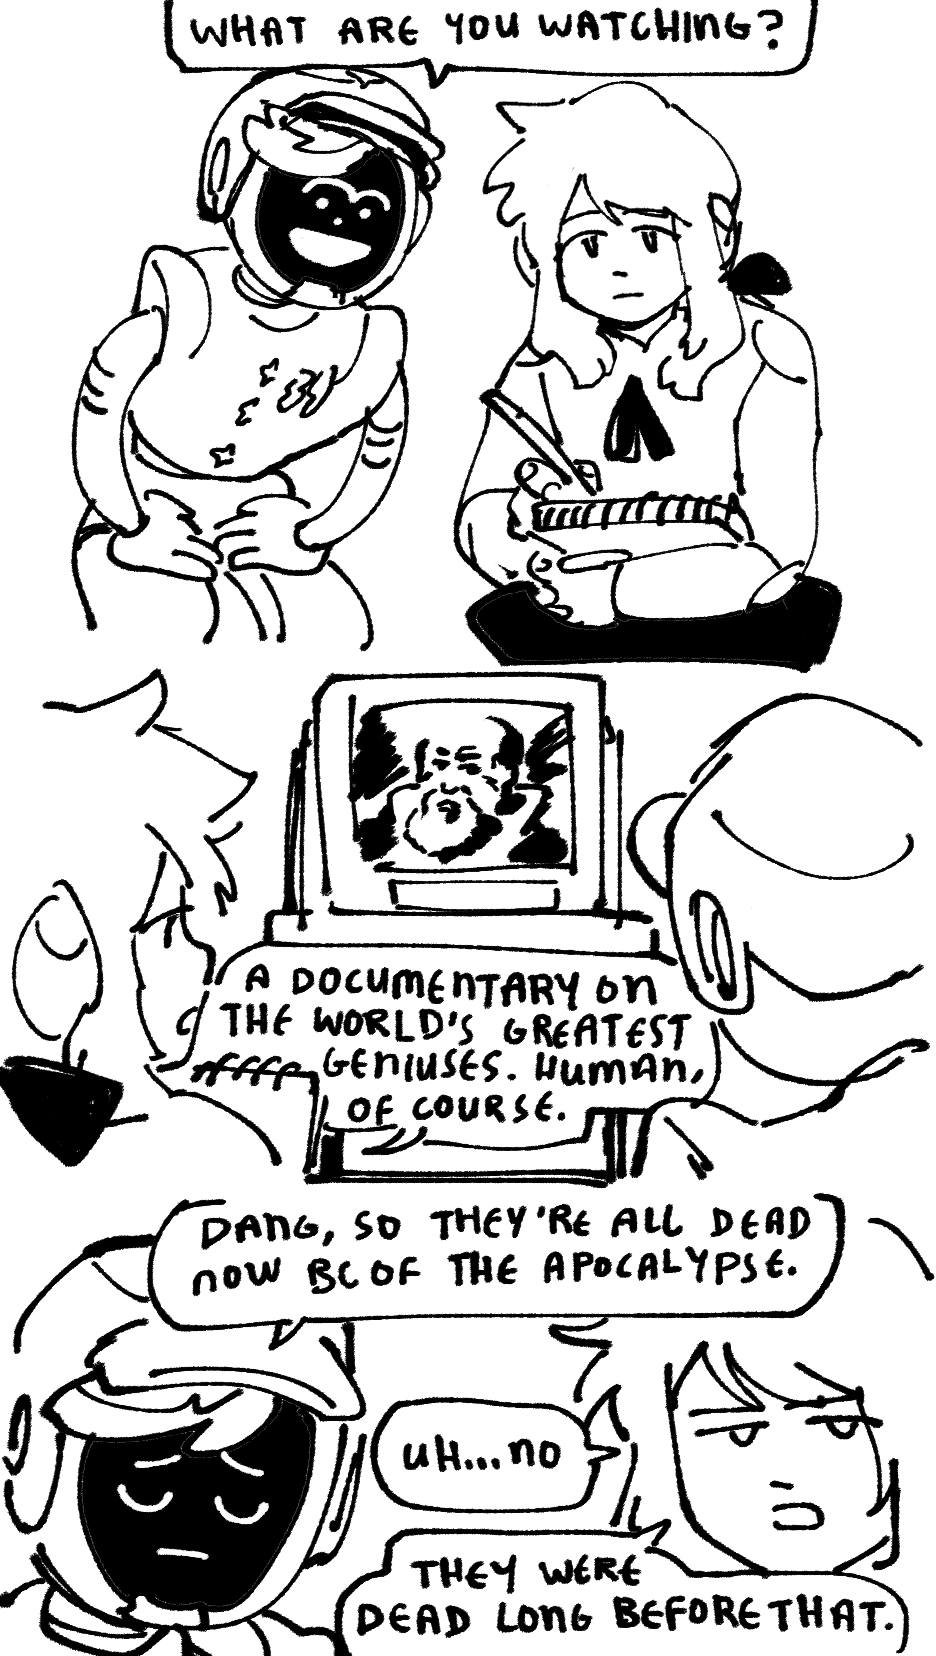 WHAT ARE YOU WATCHING?
A DOCUMENTARY ON
THE WORLD'S GREATEST
GENIUSES. HUMAN,
OF COURSE.
DANG, SO THEY'RE ALL DEAD
NOW BC OF THE APOCALYPSE.
UH...NO
THEY WERE
DEAD LONG BEFORE THAT.